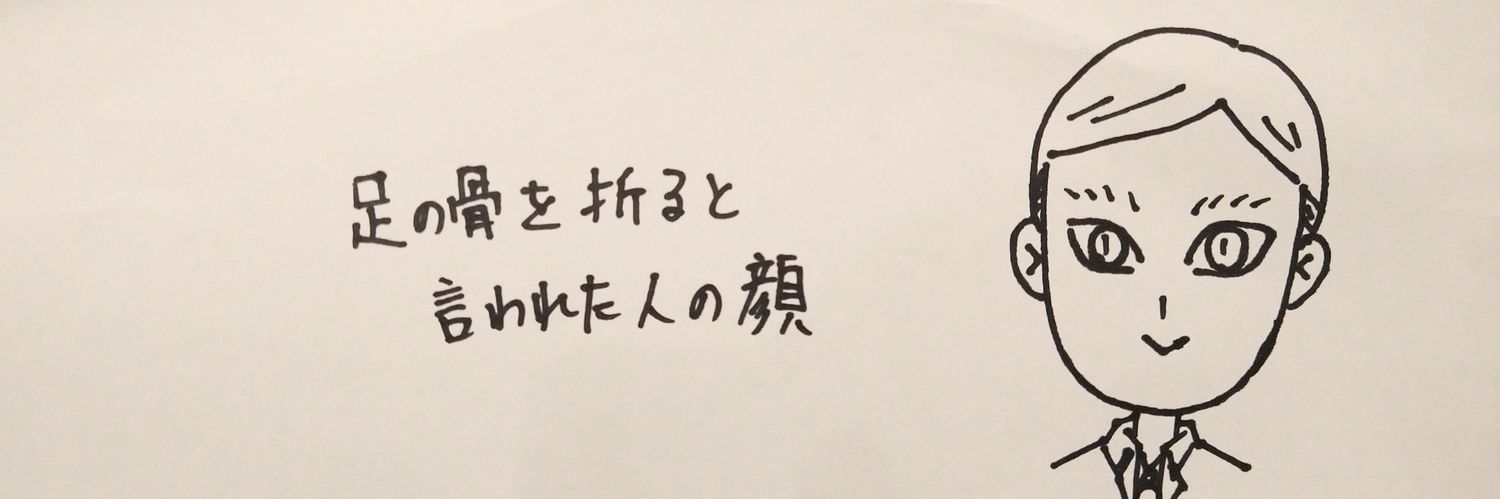 足の骨を折ると
言われた人の顔